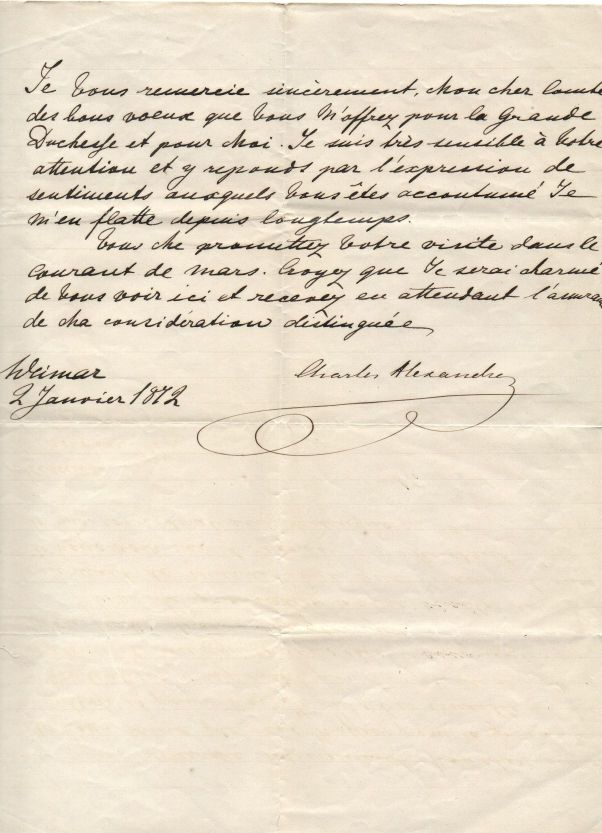 Je Vous remercie sincèrement, Mon cher Comte
des bons voeux que Vous M'offrez pour la Grande
Duchesse et pour Moi. Je suis très sensible à Votre
attention et y reponds par l'expression de
sentiments auxquels Vous êtes accoutumé Je
M'en flatte depuis longtemps.
Vous Me promettez Votre visite dans le
Courant de Mars. Croyez que Je serai charmé
de Vous voir ici et recevez en attendant l'assuran
de Ma considération distinguée
Charles Alexandre
Weimar
2 Janvier 1872